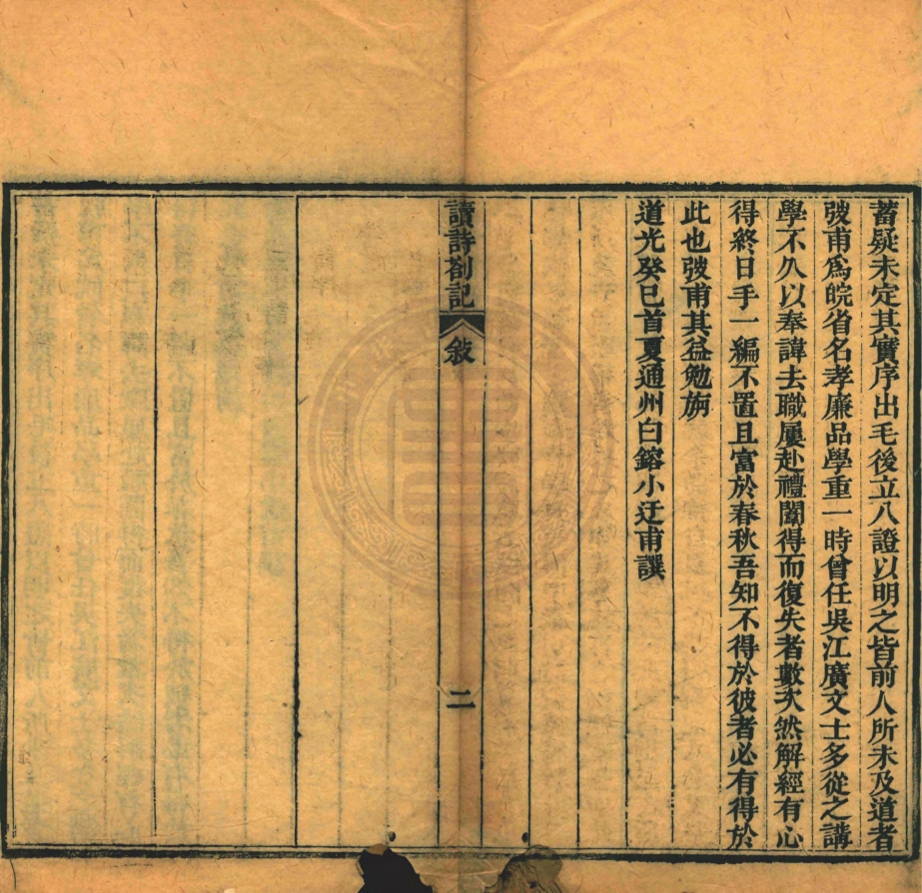 蓄疑未定其實序出毛後立八證以明之皆前人所未及道者
弢甫爲皖省名孝廉品學重一時曾任吳江廣文士多從之講
學不久以奉諱去職屢赴禮闈得而復失者數次然解經有心
得終日手一編不置且富於春秋吾知不得於彼者必有得於
此也弢甫其益勉旃
道光癸巳首夏通州白鎔小迂甫譔
讀詩劄記
敍
二